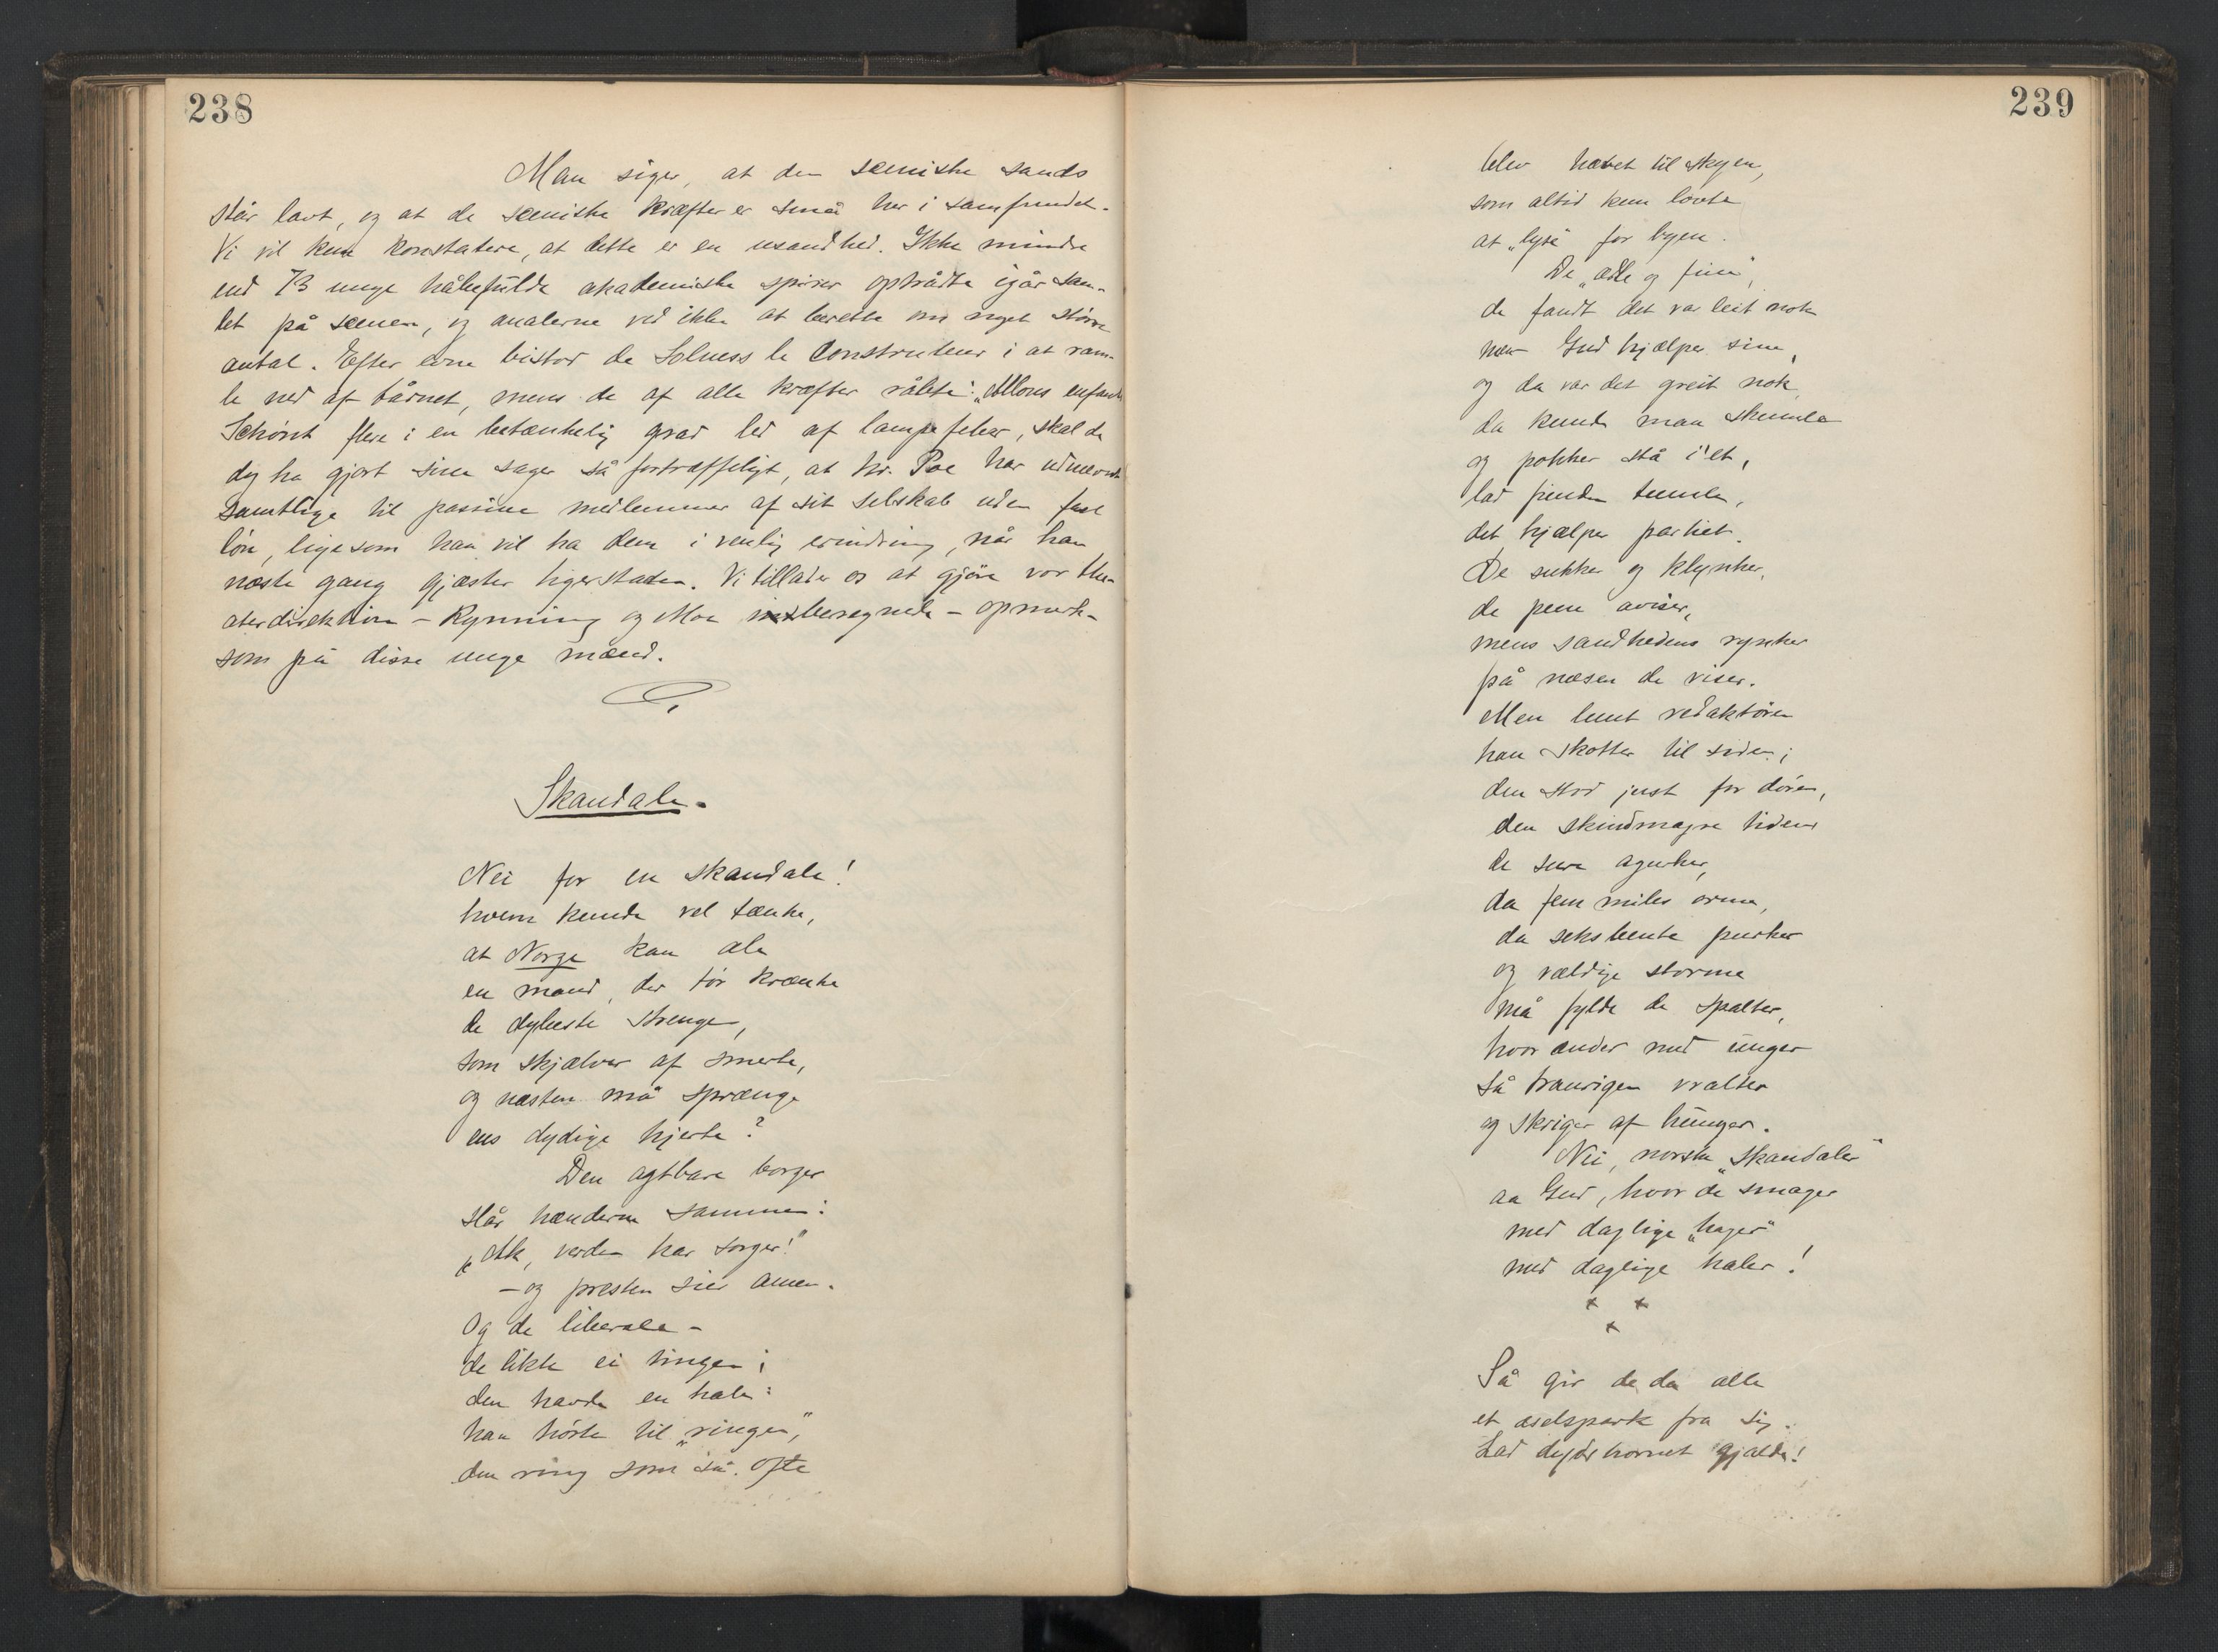 238
Man siger, at den sceniske sands
står lavt, og at de sceniske kræfter er små her i samfundet.
Vi vil kun konstatere, at dette er en usandhed. Ikke mindre
end 73 unge håbefulde akademiske spirer optrådte igår sam-
let på scenen, og analerne ved ikke at berette om noget større
antal. Efter evne bistod de Solness le Constructeur i at ram-
le ned af tårnet, mens de af alle kræfter rålte: „Allons enfants
Schønt flere i en betænkelig grad led af lampefeber, skal de
dog ha gjort sine sager så fortræffeligt, at hr. Poe har udnævnt
samtlige til passive medlemmer af sit selskab uden fast
løn, ligesom han vil ha dem i venlig erindring, når han
næste gang gjæster tigerstaden. Vi tillader os at gjøre vor the-
aterdirektion - Rynning og Moe iberegnede - opmærk-
som på disse unge mænd.
Skandale.
Nei for en skandale!
hvem kunde vel tænke,
at Norge kan ale
en mand, der tør krænke
de dybeste strenge,
som skjælver af smerte,
og næsten må sprænge
ens dydige hjerte?
Den agtbare borger
slår hænderne sammen:
„Ak, verden har sorger!"
- og presten sier amen.
Og de liberale -
de likte ei tingen;
den havde en hale:
han hørte til „ringen",
den ring som så ofte
239
blev hævet til skyen,
som altid kun lovte
at „lyse" for byen.
De „ædle og fine",
de fandt det var leit nok
men Gud hjælper sine,
og da var det greit nok,
da kunde man skumle
og pokker stå i'et,
lad fienden tumle,
det hjælper partiet.
De sukker og klynker,
de pene aviser,
mens sandhedens rynker
på næsen de viser.
Men lunt redaktøren
han skotter til siden;
den stod just for døren,
den skindmagre tiden
de sure agurker,
da fem miles orme,
da seksbente purker
og vældige storme
må fylde de spalter,
hvor ænder med unger
så traurigen vralter
og skriger af hunger.
Nei, norske „skandaler"
aa Gud, hvor de smager
med daglige „hager"
med daglige haler!
+ +
+
Så gir de da alle
et æselspark fra sig.
Lad dydshornet gjalde!